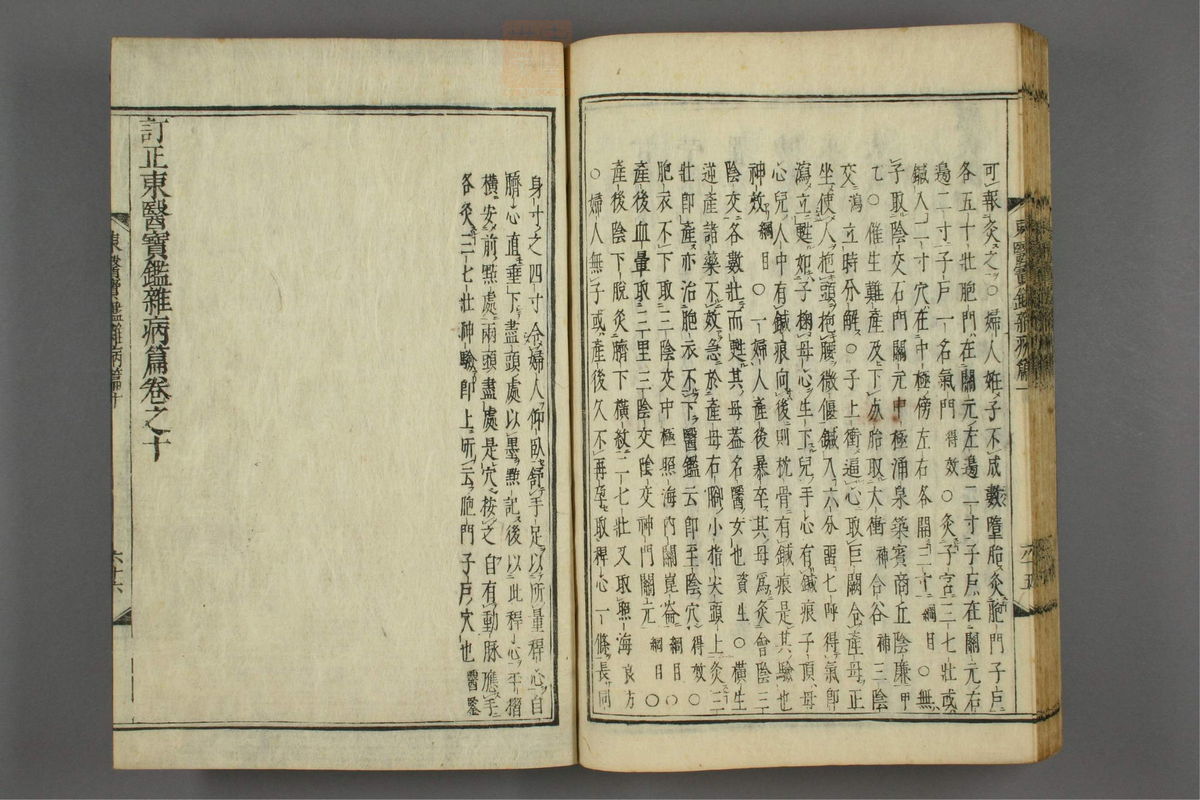 可報灸之○婦人妊子不成數墮胎灸胞門子戶
各五十壯胞門在關元左邊二寸子戶在關元右
邊二寸子戶一名氣門得效○灸子宮三七壯或
鍼入二寸穴在中極傍左右各開三寸綱目○無
子取陰交石門關元中極涌泉築賓商丘陰廉甲
乙○催生難產及下亦胎取太衝神合谷神三陰
交瀉立時分解○子上衝逼心取巨闕令產母正
坐使人抱頭抱腰微偃鍼入六分留七呼得氣即
瀉立甦如子掬母心生下兒手心有鍼痕子頂母
心兒人中有鍼痕向後則枕骨有鍼痕是其驗也
神效綱目○一婦人產後暴卒其母爲灸會陰三
陰交各數壯而甦其母蓋名醫女也資生○橫生
逆產諸藥不效急於產母右脚小指尖頭上灸三
壯即產亦治胞衣不下醫鑑云即至陰穴得效○
胞衣不下取三陰交中極照海內關崑崙綱目○
產後血暈取三里三陰交陰交神門關元綱目○
產後陰下脫灸臍下橫紋二七壯又取照海良方
○婦人無子或產後久不再孕取稈心一條長同
東醫寶鑑雜病篇十
六十五
身寸之四寸令婦人仰臥舒手足以所量稈心自
臍心直垂下盡頭處以墨點記後以此稈心平摺
橫安前點處兩頭盡處是穴按之自有動脉應手
各灸三七壯神驗即上所云胞門子戶穴也醫鑒
訂正東醫寶鑑雜病篇卷之十
東醫寶鑑雜病篇十
六十六